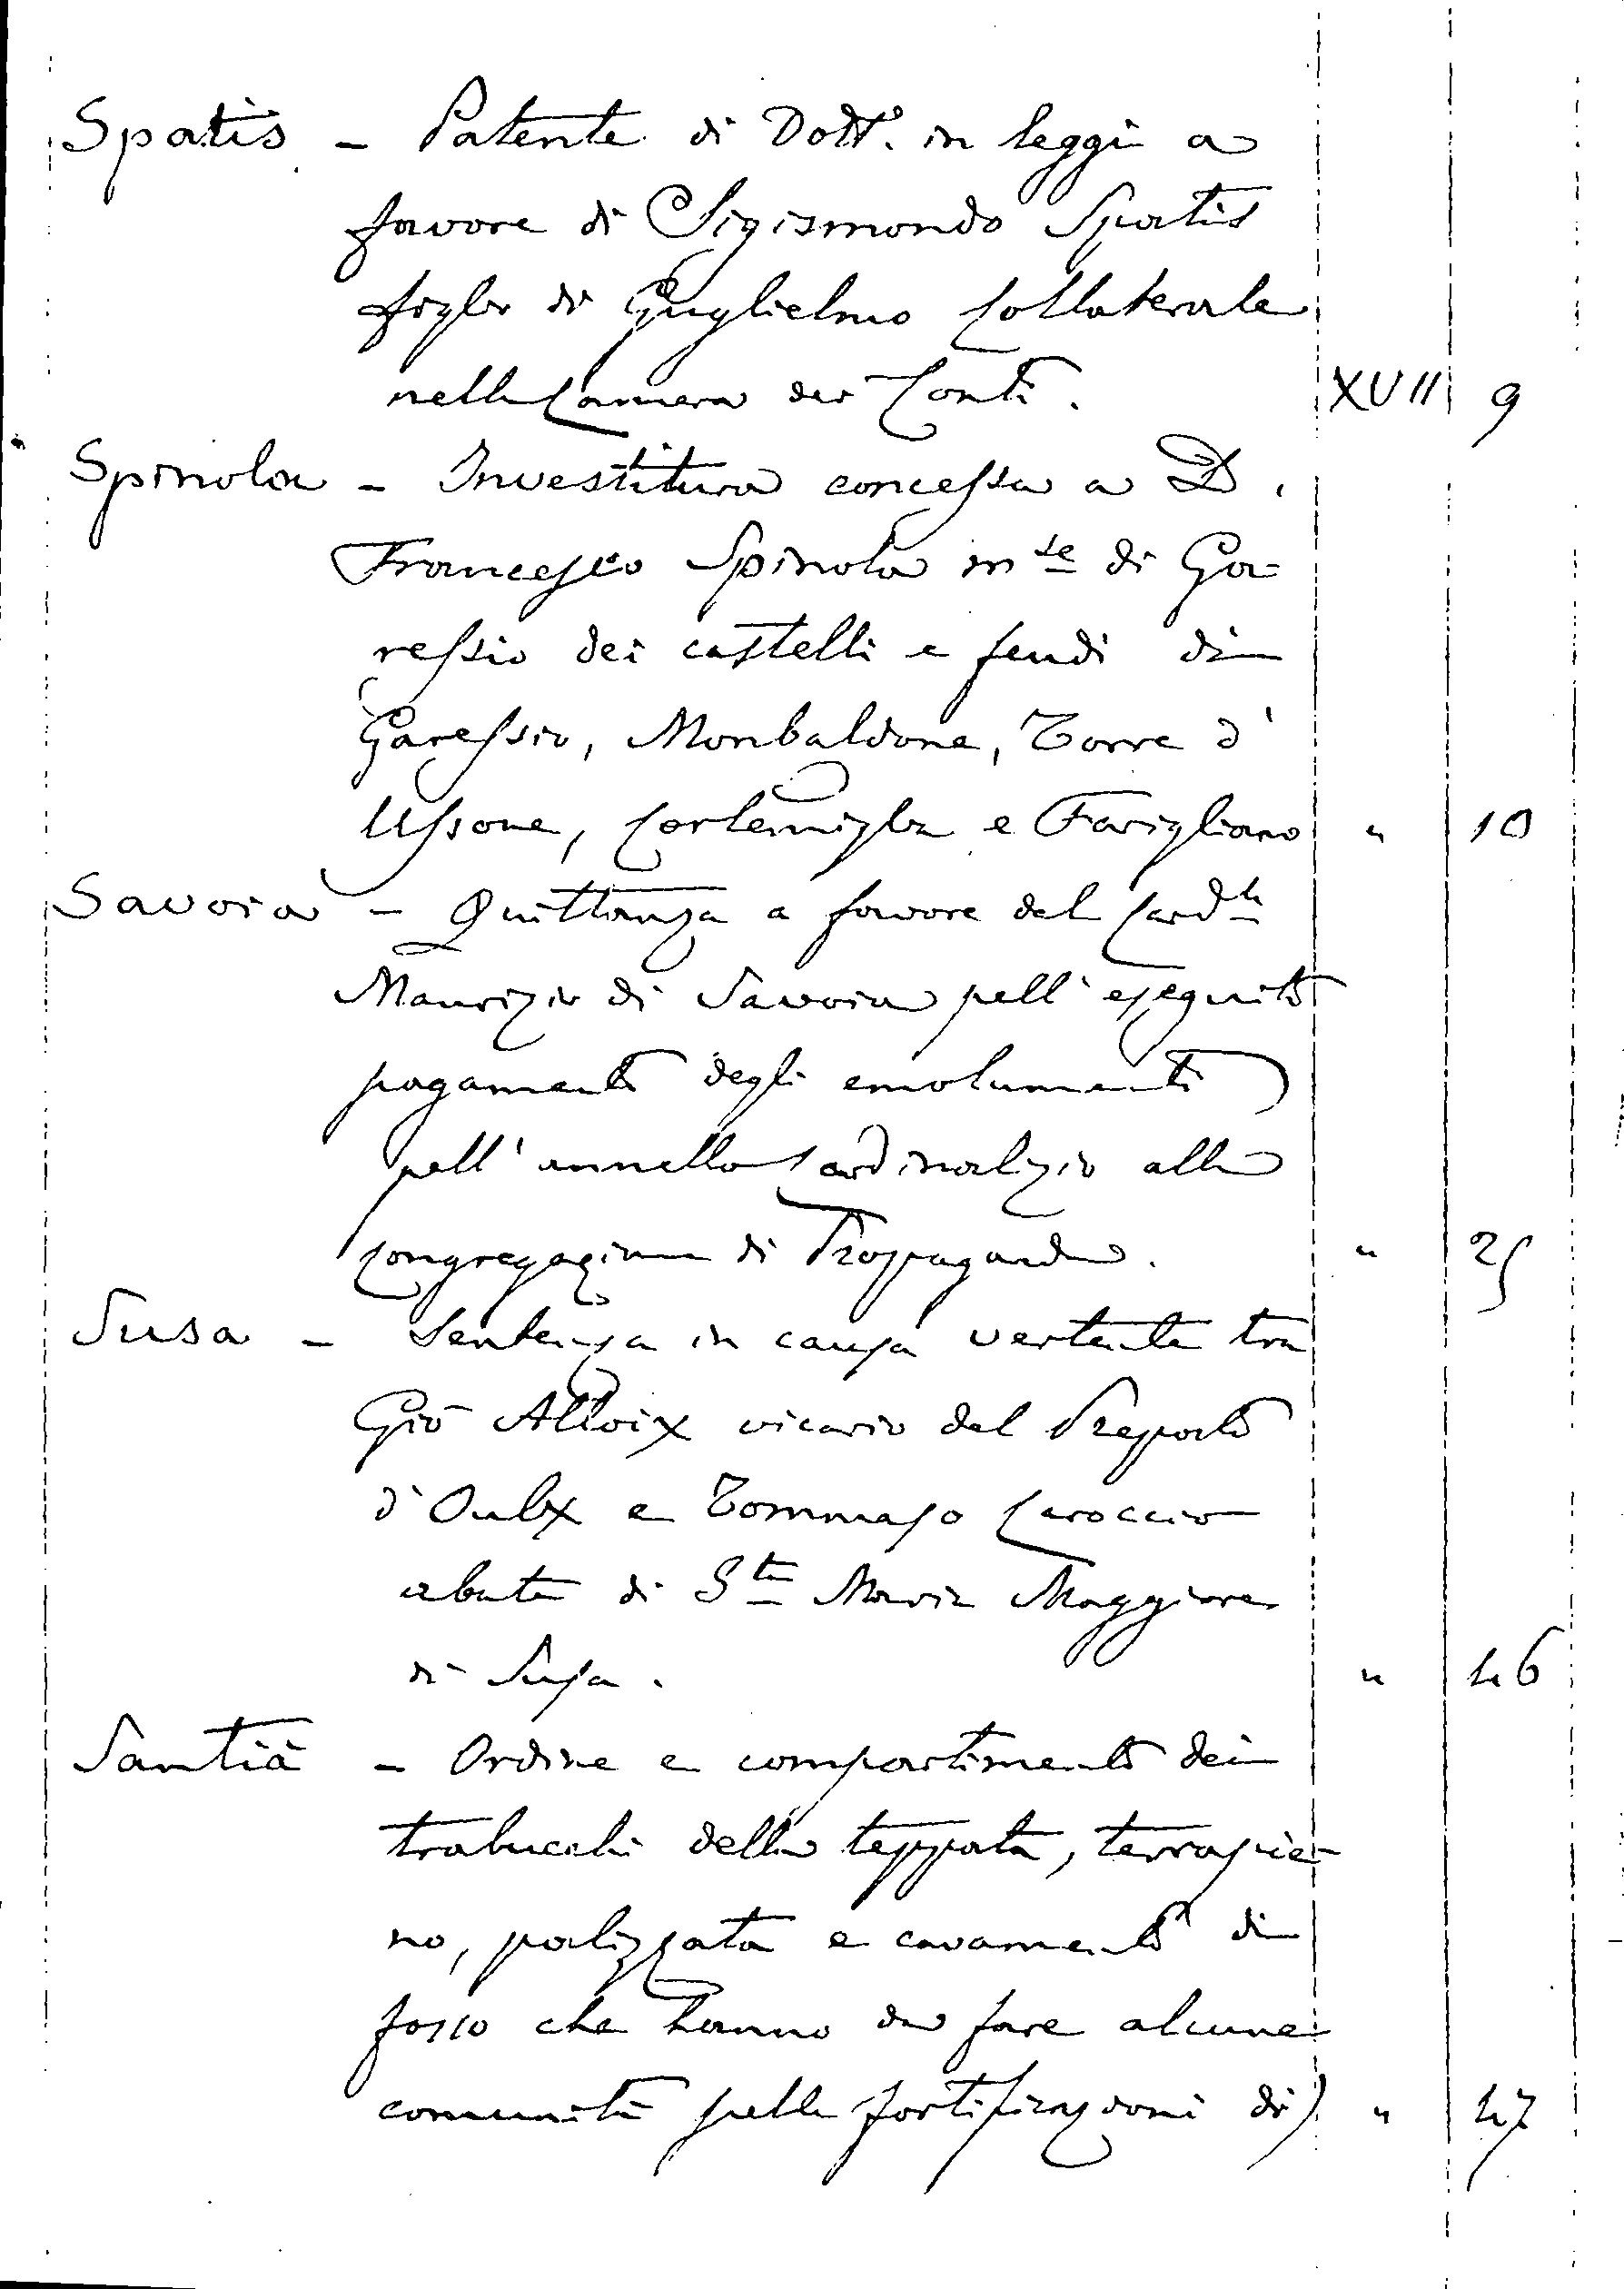 Spatis - Patente di Dott.e in leggi a
favore di Sigismondo Spatis
figlio di Guglielmo Collaterale
nella Camera dei Conti. XVII 9
Spinola - Investitura concessa a D.
Francesco Spinola m.se di Ga-
ressio dei castelli e feudi di
Garessio, Monbaldone, Torre d'
Ussone, Cortemiglia e Farigliano " 10
Savoia - Quittanza a favore del Card.le
Maurizio di Savoia pell' eseguito
pagamento degli emolumenti
pell' annello Cardinalizio alla
Congregazione di Propaganda. " 25
Susa - Sentenza in causa vertente tra
Gio Alloix vicario del Preposto
d'Oulx e Tommaso Caroccio
abate di S.ta Maria Maggiore
di Susa. " 46
Santià - Ordine e compartimento dei
trabucchi della teppata, terrapie-
no, palizzata e cavamento di
fosso che hanno da fare alcune
comunità pelle fortificazioni di) " 47